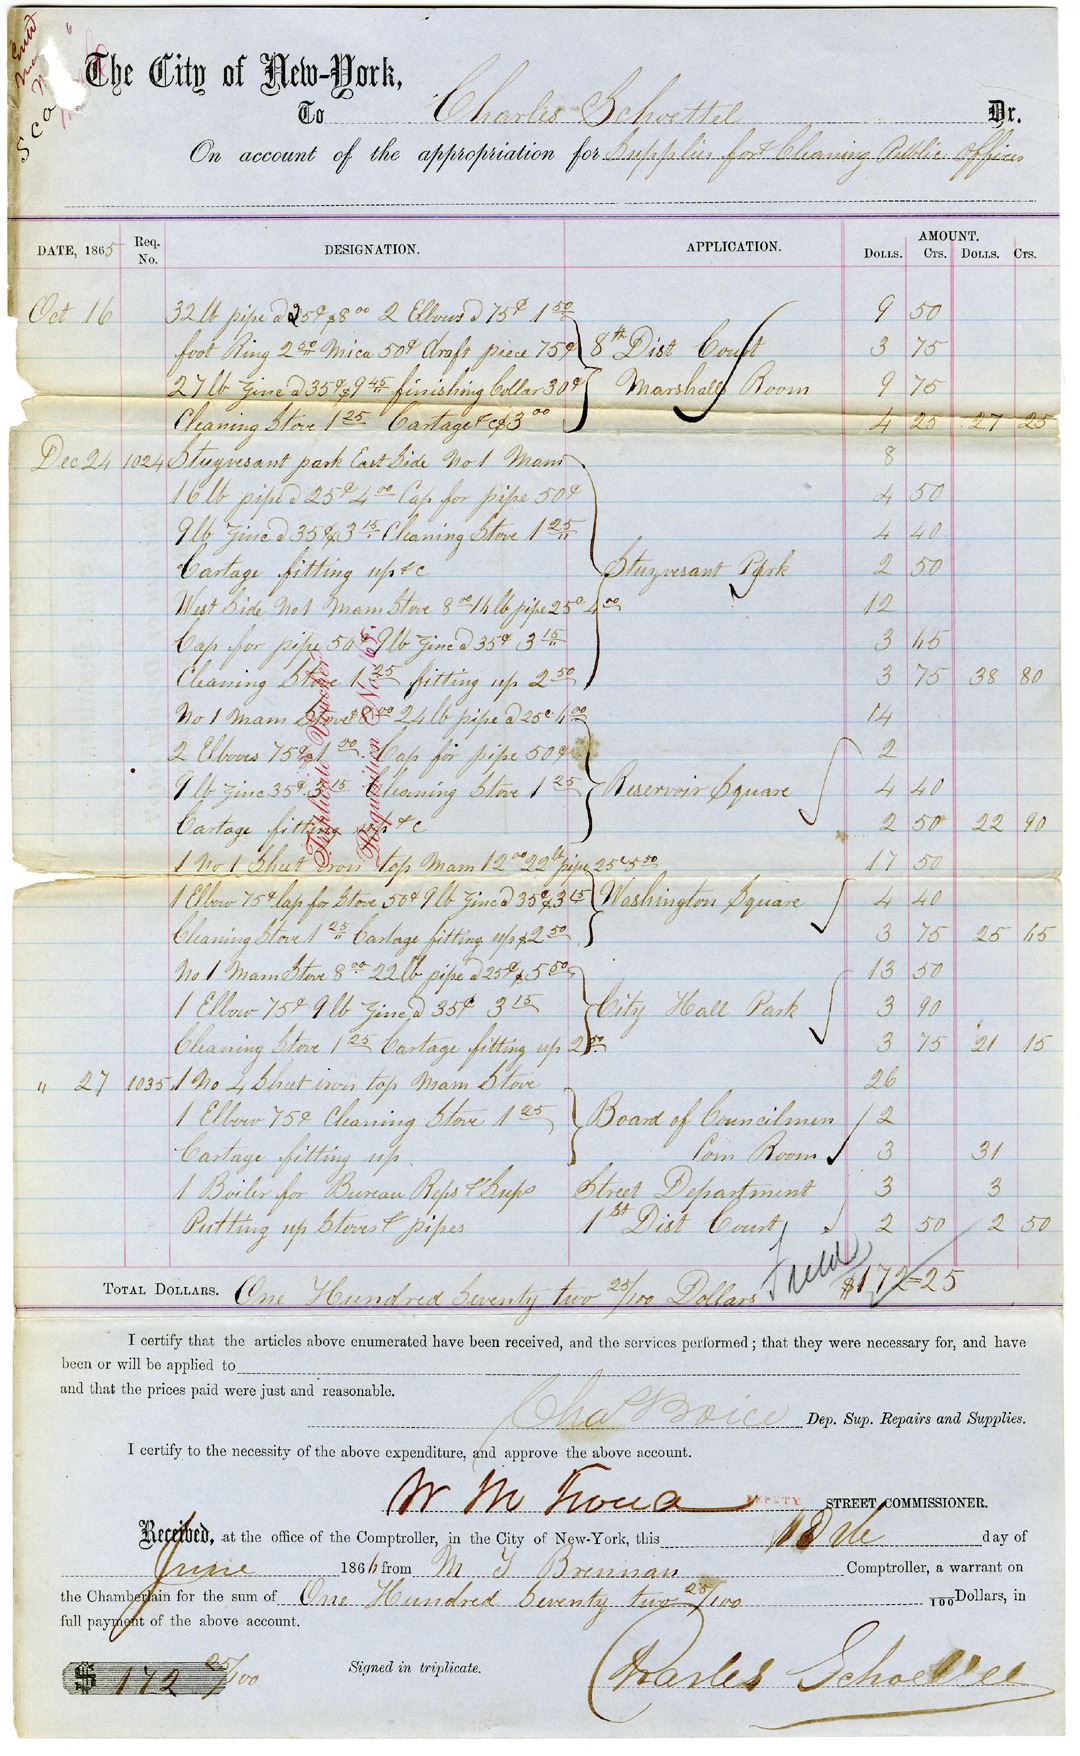 The City of New-York,
To Charles Schoettel Dr.
On account of the appropriation for Supplies for & Cleaning Public Offices
DATE, 1865 Req. No. DESIGNATION. APPLICATION. AMOUNT.
DOLLS. CTS. DOLLS. CTS.
Oct 16 32 lb pipe @ 25¢ $8 00 2 Elbows @ 75¢ 1 50 9 50
foot Ring 2 50 Mica 50¢ draft piece 75¢ 8th Dist Court 3 75
27 lb Zinc @ 35¢ $9 45 finishing Collar 30¢ Marshalls Room 9 75
Cleaning Stove 1 25 Cartage &c $3 00 4 25 27 25
Dec 24 1024 Stuyvesant park East Side No 1 Mam 8
16 lb pipe @ 25¢ 4 00 Cap for pipe 50¢ 4 50
9 lb Zinc @ 35¢ $3 15 Cleaning Stove 1 25 4 40
Cartage fitting up &c Stuyvesant Park 2 50
West Side No 1 Mam Stove 8 00 16 lb pipe 25¢ 4 00 12
Cap for pipe 50¢ 9 lb Zinc @ 35¢ 3 15 3 65
Cleaning Stove 1 25 fitting up 2 50 3 75 38 80
No 1 Mam Stove $8 00 24 lb pipe @ 25¢ 6 00 14
2 Elbows 75¢ $1 50 Cap for pipe 50¢ 2
9 lb Zinc 35¢ 3 15 Cleaning Stove 1 25 Reservoir Square 4 40
Cartage fitting up &c 2 50 22 90
1 No 1 Sheet iron top Mam 12 00 22 lb pipe 25¢ 5 50 17 50
1 Elbow 75¢ Cap for Stove 50¢ 9 lb Zinc @ 35¢ $3 15 Washington Square 4 40
Cleaning Stove 1 25 Cartage fitting up $2 50 3 75 25 65
No 1 Mam Stove 8 00 22 lb pipe @ 25¢ $5 50 13 50
1 Elbow 75¢ 9 lb Zinc @ 35¢ 3 15 City Hall Park 3 90
Cleaning Stove 1 25 Cartage fitting up 2 50 3 75 21 15
" 27 1035 1 No 4 Sheet iron top Mam Stove 26
1 Elbow 75¢ Cleaning Stove 1 25 Board of Councilmen 2
Cartage fitting up Com Room 3 31
1 Boiler for Bureau Reps & Sups Street Department 3 3
Putting up Stoves & pipes 1st Dist Court 2 50 2 50
Triplicate Voucher
Requisition No. 65.
TOTAL DOLLARS. One Hundred Seventy two 25/100 Dollars $172=25
I certify that the articles above enumerated have been received, and the services performed; that they were necessary for, and have
been or will be applied to
and that the prices paid were just and reasonable.
Dep. Sup. Repairs and Supplies.
I certify to the necessity of the above expenditure, and approve the above account.
DEPUTY STREET COMMISSIONER.
Received, at the office of the Comptroller, in the City of New-York, this day of
June 1866 from M T Brennan Comptroller, a warrant on
the Chamberlain for the sum of One Hundred Seventy two 25/100 100 Dollars, in
full payment of the above account.
$ 172 25/100 Signed in triplicate. Charles Schoettel